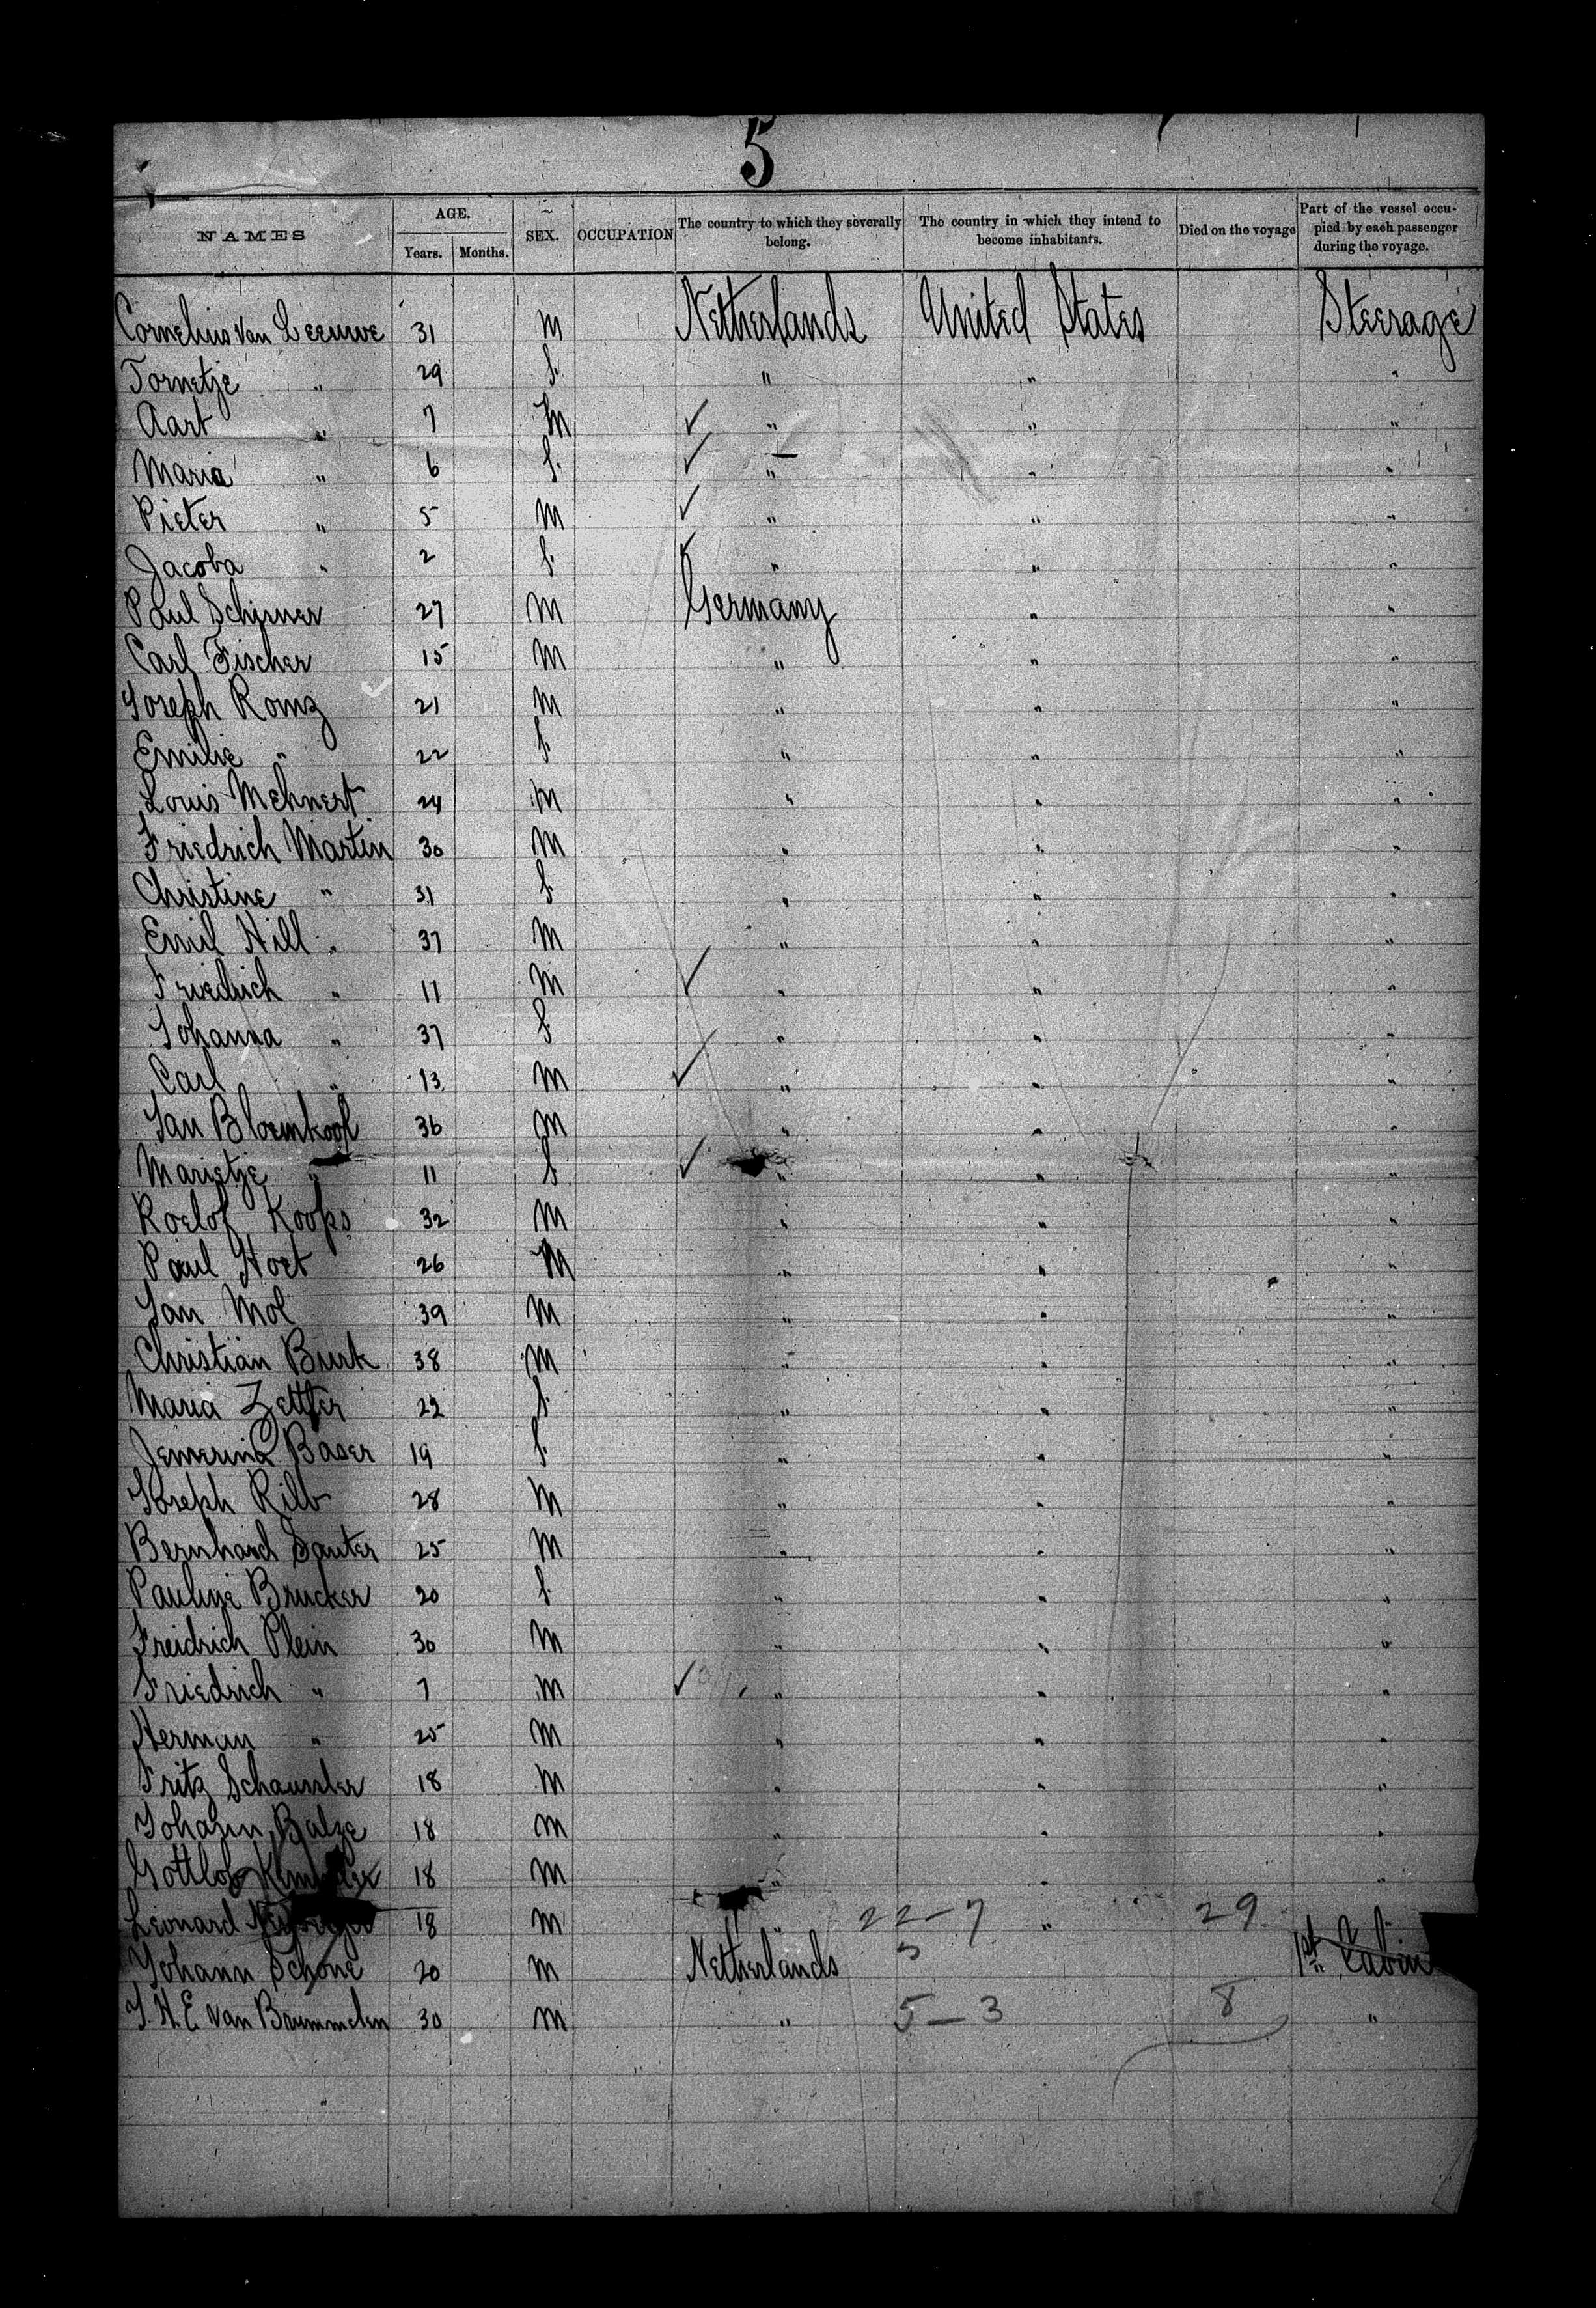 5
NAMES AGE. Years. Months. SEX. OCCUPATION The country to which they severally belong. The country in which they intend to become inhabitants. Died on the voyage Part of the vessel occupied by each passenger during the voyage.
Cornelius Van Leeuwe 31 M Netherlands United States Steerage
Tornetje " 29 f. " " "
Aart " 7 M ✓ " " "
Maria " 6 f. ✓ " " "
Pieter " 5 M ✓ " " "
Jacoba " 2 f. ✓ " " "
Paul Schirner 27 M Germany " "
Carl Fischer 15 M " " "
Joseph 21 M " " "
Emilie " 22 f. " " "
Louis Mehnert 24 M " " "
Friedrich Martin 30 M " " "
Christine " 31 f. " " "
Emil Hill 37 M " " "
Friedrich " 11 M ✓ " " "
Johanna " 37 f. " " "
Carl " 13 M ✓ " " "
Jan Bloemkool 36 M " " "
Marietje " 11 f. ✓ " " "
Roelof Koops 32 M " " "
Paul 26 M " " "
Jan Mol 39 M " " "
Christian Burk 38 M " " "
Maria 22 f. " " "
Baser 19 f. " " "
Joseph Rilb 28 M " " "
Bernhard Sauter 25 M " " "
Pauline Brucker 20 f. " " "
Freidrich Plein 30 M " " "
Friedrich " 7 M ✓ " " "
Herman " 25 M " " "
Fritz 18 M " " "
Johann Balze 18 M " " "
Gottlob 18 M " " "
Leonard 18 M " 22-7 " 29
Johann Schöne 20 M Netherlands 1st Cabin
J. H. E. van Brummelen 30 M " 5-3 8 "